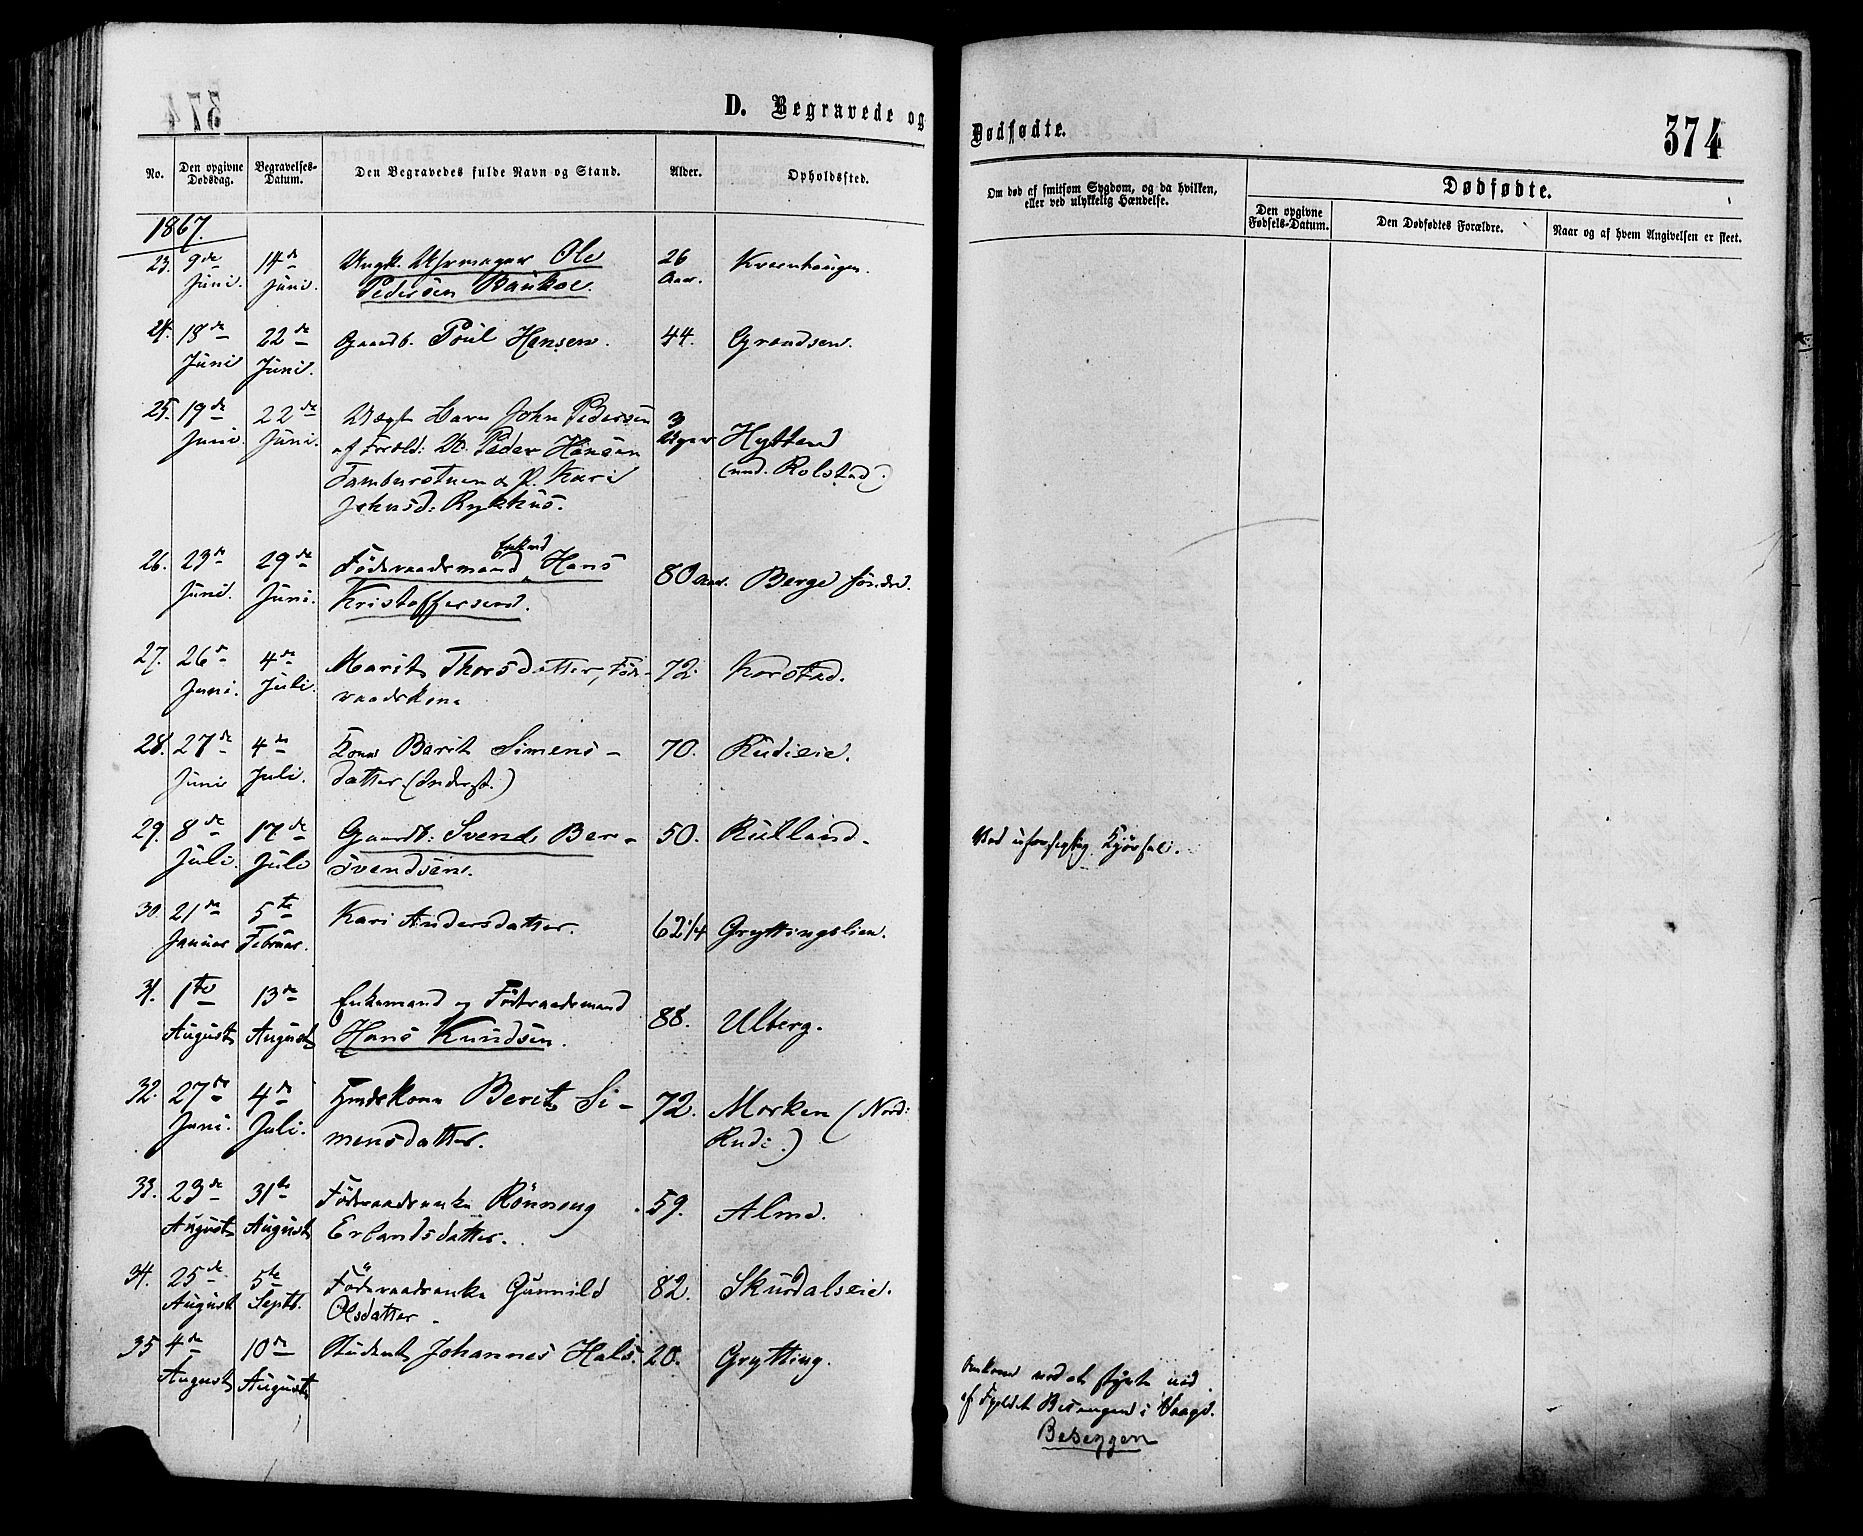 D. Begravede og
Dødfødte.
374
No.
Den opgivne Dødsdag.
Begravelses-Datum.
Den Begravedes fulde Navn og Stand.
Alder.
Opholdssted.
Om død af smitsom Sygdom, og da hvilken,
eller ved ulykkelig Hændelse.
Dødfødte.
Den opgivne Fødsels-Datum.
Den Dødfødtes Forældre.
Naar og af hvem Angivelsen er skeet.
1867.
23. 9de Juni. 14de Juni. Ungk. Uhrmager Ole 26 Aar. Kvernhaugen.
Pedersen Bankve.
24. 18de Juni 22de Juni. Gaardb. Poul Hansen. 44. Grandsen.
25. 19de Juni. 22de Juni. Uægt Barn John Pedersen 3 Uger Hytten
af Foræld: U. Peder Hansen (und. Rolstad)
Tamburstuen & P. Kari
Johnsd: Rykhus.
26. 23de Juni. 29de Juni. Föderaadsmand Enkemd Hans 80 Aar. Berge søndre.
Kristoffersen.
27. 26de Juni. 4de Juli. Marit Thorsdatter, Föde- 72. Korstad.
raadskone
28. 27de Juni 4de Juli. Kone Barit Simens- 70. Rudieie.
datter (Inderst.)
29. 8de Juli. 17de Juli Gaardb: Svend Ber- 50. Rulland. Ved uforsigtig Kjörsel.
svendsen.
30. 21de Januar 5te Februar. Kari Andersdatter. 62 1/4 Gryttingslien.
31. 1te August 13de August Enkemand og Föderaadsmand 88. Ulberg.
Hans Knudsen.
32. 27de Juni. 4de Juli. Kone Berit Si- 72. Morken (Nord:
mensdatter. Rudi.)
33. 23de August 31te August Föderaadsenke Rönnoug 59. Alme.
Erlandsdatter.
34. 25de August 5te Septb. Föderaadsenke Gunnild 82. Skurdalseie.
Olsdatter
35 4de August 10de August Student Johannes Hals. 20. Grytting. Omkom ved at styrte ned
af Fjeldet Besseggen i Vaage.
Beseggen